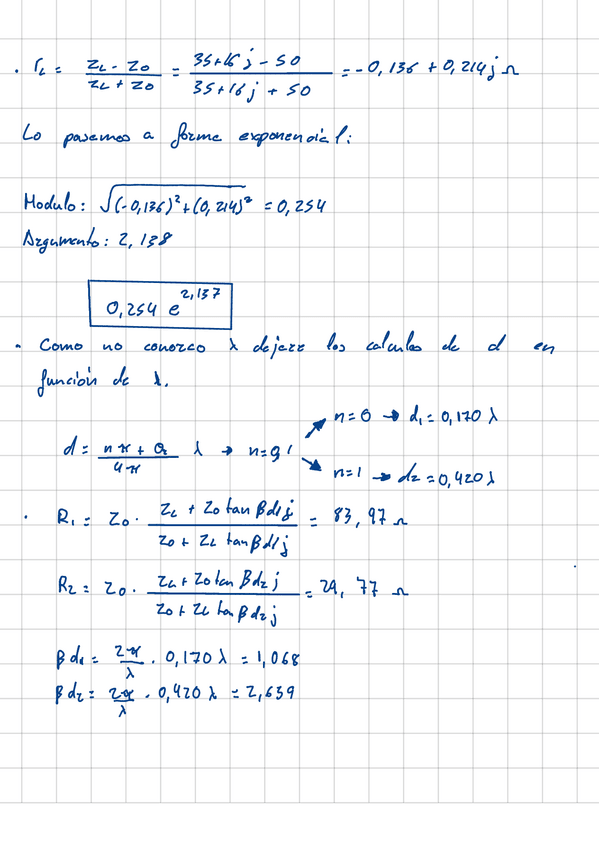 · ΓL = (ZL - Z0)/(ZL + Z0) = (35+16j - 50)/(35+16j + 50) = -0,136 + 0,214j Ω
Lo pasamos a forma exponencial:
Modulo: √((-0,136)² + (0,214)²) = 0,254
Argumento: 2,138
0,254 e^2,137
· Como no conozco λ dejare los calculos de d en
función de λ.
n=0 → d1 = 0,170 λ
d = (nπ + θr)/(4π) λ → n=0,1
n=1 → d2 = 0,420 λ
· R1 = Z0 · (ZL + Z0 tan βd1 j)/(Z0 + ZL tan βd1 j) = 83,97 Ω
R2 = Z0 · (ZL + Z0 tan βd2 j)/(Z0 + ZL tan βd2 j) = 29,77 Ω
βd1 = 2π/λ · 0,170 λ = 1,068
βd2 = 2π/λ · 0,420 λ = 2,639